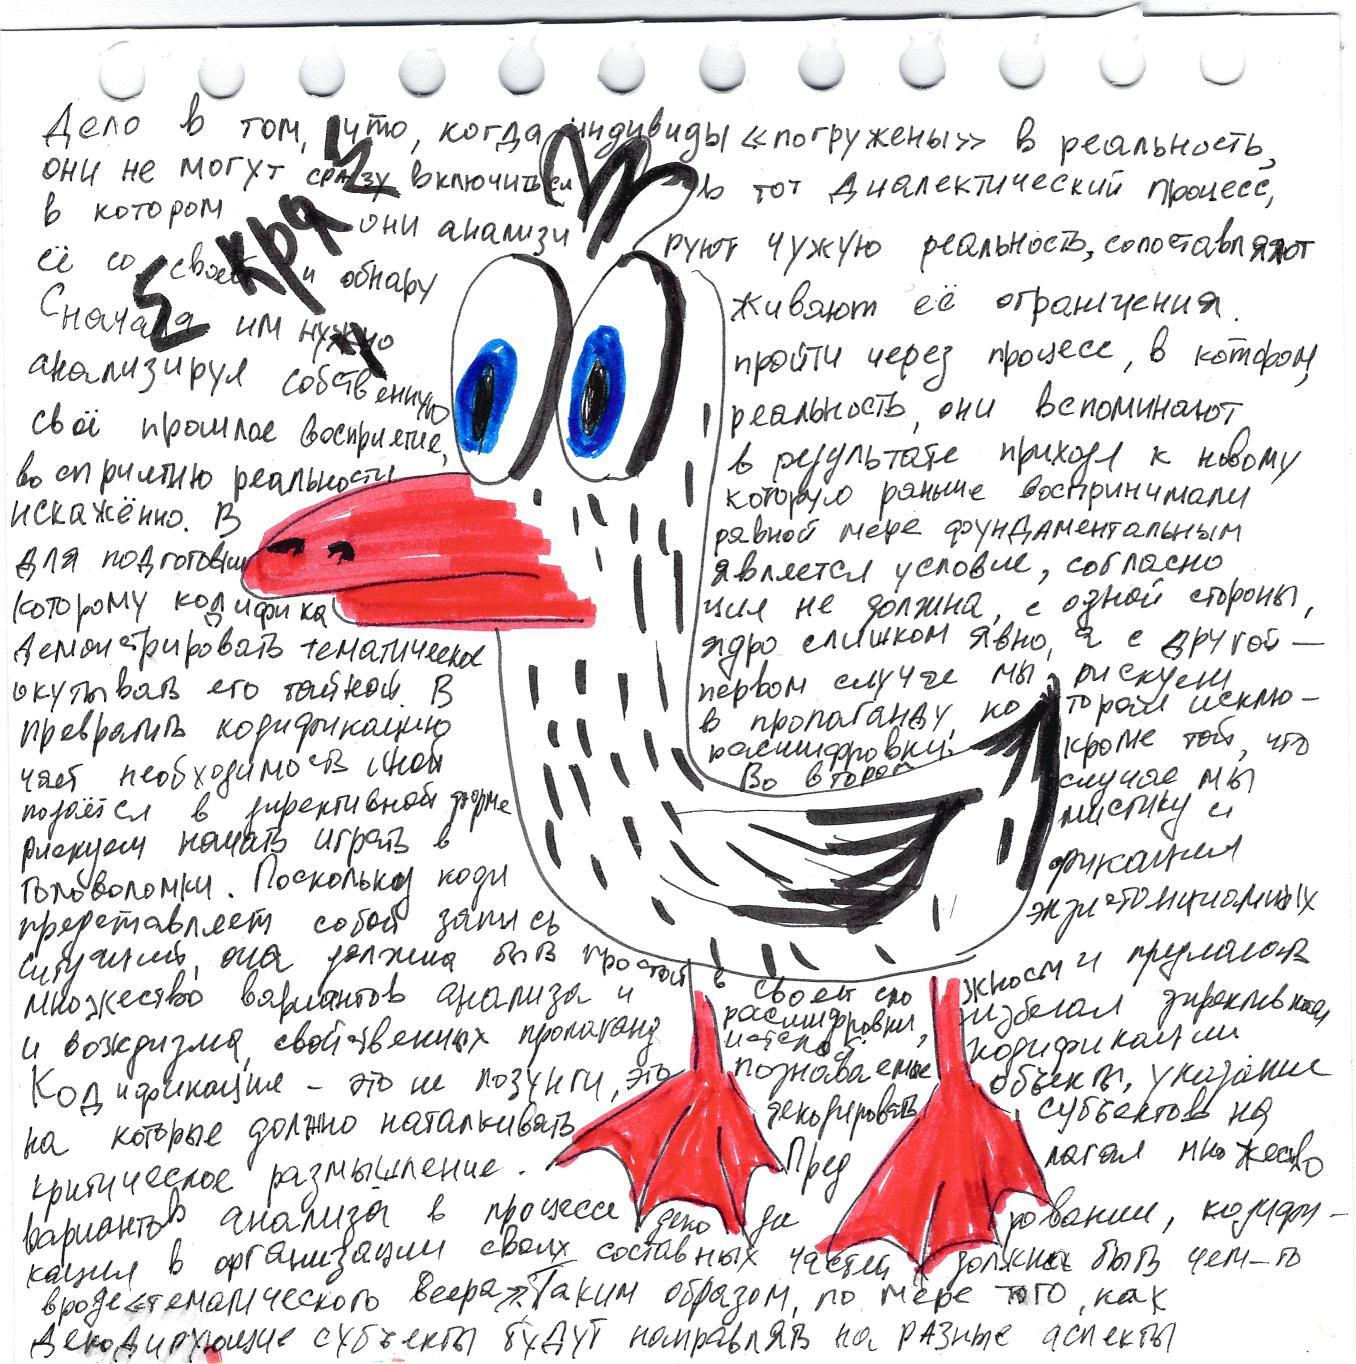 Дело в том, что, когда индивиды «погружены» в реальность,
они не могут сразу включиться в тот диалектический процесс,
в котором они анализируют чужую реальность, сопоставляют
её со своей и обнаруживают её ограничения.
Сначала им нужно пройти через процесс, в котором,
анализируя собственную реальность, они вспоминают
своё прошлое восприятие, в результате приходя к новому
восприятию реальности, которую раньше воспринимали
искажённо. В равной мере фундаментальным
для подготовки является условие, согласно
которому кодификация не должна, с одной стороны,
демонстрировать тематическое ядро слишком явно, а с другой —
окутывать его тайной. В первом случае мы рискуем
превратить кодификацию в пропаганду, которая исклю-
чает необходимость иной расшифровки, кроме той, что
подаётся в директивной форме. Во втором случае мы
рискуем начать играть в мистику и
головоломки. Поскольку кодификация
представляет собой запись экзистенциальных
ситуаций, она должна быть простой в своей сложности и предлагать
множество вариантов анализа и расшифровки, избегая директивности
и вождизма, свойственных пропаганд кодификации
Кодификации – это не лозунги, это познаваемые объекты, указание
на которые должно наталкивать декодировать субъектов на
критическое размышление. Предлагая множество
вариантов анализа в процессе декодирования, кодифи-
кация в организации своих составных частей должна быть чем-то
вроде «тематического веера». Таким образом, по мере того, как
декодирующие субъекты будут направлять на разные аспекты
КРЯ